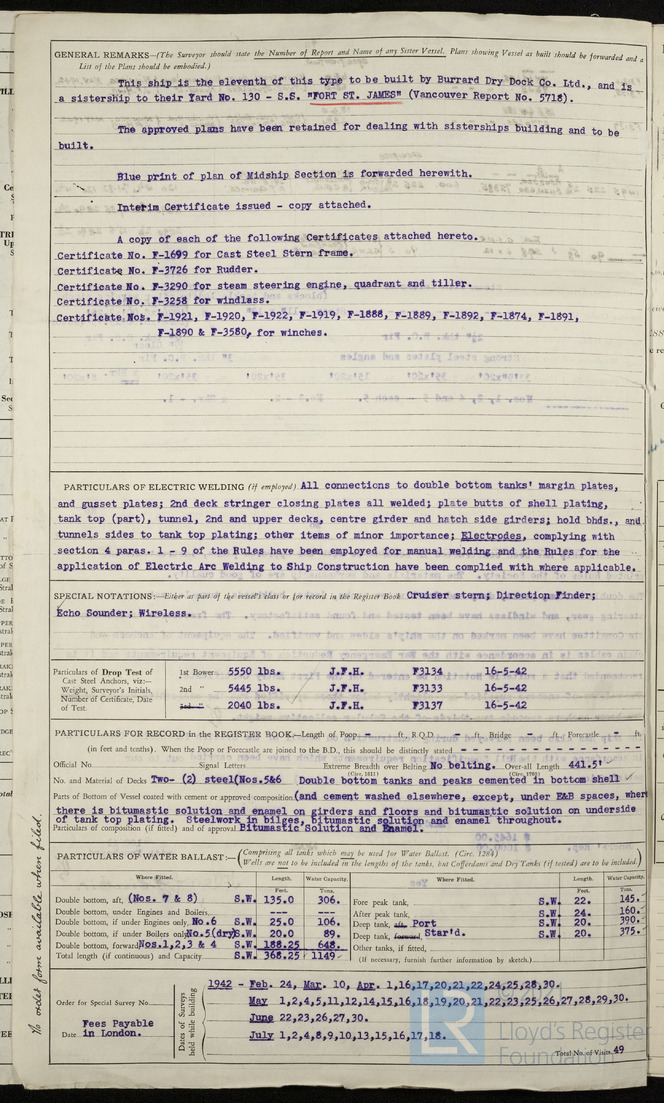 GENERAL REMARKS—(The Surveyor should state the Number of Report and Name of any Sister Vessel. Plans showing Vessel as built should be forwarded and a
List of the Plans should be embodied.)
This ship is the eleventh of this type to be built by Burrard Dry Dock Co. Ltd., and is
a sistership to their Yard No. 130 - S.S. "FORT ST. JAMES" (Vancouver Report No. 5718).
The approved plans have been retained for dealing with sisterships building and to be
built.
Blue print of plan of Midship Section is forwarded herewith.
Interim Certificate issued - copy attached.
A copy of each of the following Certificates attached hereto.
Certificate No. F-1699 for Cast Steel Stern frame.
Certificate No. F-3726 for Rudder.
Certificate No. F-3290 for steam steering engine, quadrant and tiller.
Certificate No. F-3258 for windlass.
Certificate Nos. F-1921, F-1920, F-1922, F-1919, F-1888, F-1889, F-1892, F-1874, F-1891,
F-1890 & F-3580, for winches.
PARTICULARS OF ELECTRIC WELDING (if employed) All connections to double bottom tanks' margin plates,
and gusset plates; 2nd deck stringer closing plates all welded; plate butts of shell plating,
tank top (part), tunnel, 2nd and upper decks, centre girder and hatch side girders; hold bhds., and
tunnels sides to tank top plating; other items of minor importance; Electrodes, complying with
section 4 paras. 1 - 9 of the Rules have been employed for manual welding and the Rules for the
application of Electric Arc Welding to Ship Construction have been complied with where applicable.
SPECIAL NOTATIONS:—Either as part of the vessel's class or for record in the Register Book Cruiser stern; Direction Finder;
Echo Sounder; Wireless.
Particulars of Drop Test of Cast Steel Anchors, viz:— Weight, Surveyor's Initials, Number of Certificate, Date of Test.
1st Bower 5550 lbs. J.F.H. F3134 16-5-42
2nd " 5445 lbs. J.F.H. F3133 16-5-42
3rd " 2040 lbs. J.F.H. F3137 16-5-42
PARTICULARS FOR RECORD in the REGISTER BOOK—Length of Poop - ft., R.Q.D. - ft., Bridge - ft., Forecastle - ft.
(in feet and tenths). When the Poop or Forecastle are joined to the B.D., this should be distinctly stated - - - - - - - - - - - - - -
Official No. Signal Letters Extreme Breadth over Belting No belting. Over-all Length 441.5'
(Circ. 1611) (Circ. 1703)
No. and Material of Decks Two- (2) steel(Nos.5&6 Double bottom tanks and peaks cemented in bottom shell
Parts of Bottom of Vessel coated with cement or approved composition (and cement washed elsewhere, except, under E&B spaces, wher
there is bitumastic solution and enamel on girders and floors and bitumastic solution on underside
of tank top plating. Steelwork in bilges, bitumastic solution and enamel throughout.
Particulars of composition (if fitted) and of approval Bitumastic Solution and Enamel.
PARTICULARS OF WATER BALLAST:— (Comprising all tanks which may be used for Water Ballast. (Circ. 1284)
Wells are not to be included in the lengths of the tanks, but Cofferdams and Dry Tanks (if tested) are to be included.)
Where Fitted. Length. Feet. Water Capacity. Tons. Where Fitted. Length. Feet. Water Capacity. Tons.
Double bottom, aft, (Nos. 7 & 8) S.W. 135.0 306. Fore peak tank, S.W. 22. 145.
Double bottom, under Engines and Boilers, --- --- After peak tank, S.W. 24. 160.
Double bottom, if under Engines only, No.6 S.W. 25.0 106. Deep tank, aft, Port S.W. 20. 390.
Double bottom, if under Boilers only No.5(dry) S.W. 20.0 89. Deep tank, forward, Star'd. S.W. 20. 375.
Double bottom, forward Nos.1,2,3 & 4 S.W. 188.25 648. Other tanks, if fitted,
Total length (if continuous) and Capacity S.W. 368.25 1149 (If necessary, furnish further information by sketch.)
Order for Special Survey No.
Date Fees Payable
in London.
Dates of Surveys held while building
1942 - Feb. 24, Mar. 10, Apr. 1,16,17,20,21,22,24,25,28,30.
May 1,2,4,5,11,12,14,15,16,18,19,20,21,22,23,25,26,27,28,29,30.
June 22,23,26,27,30.
July 1,2,4,8,9,10,13,15,16,17,18.
Total No. of Visits 49
No order form available when filed.
LR
Lloyd's Register
Foundation